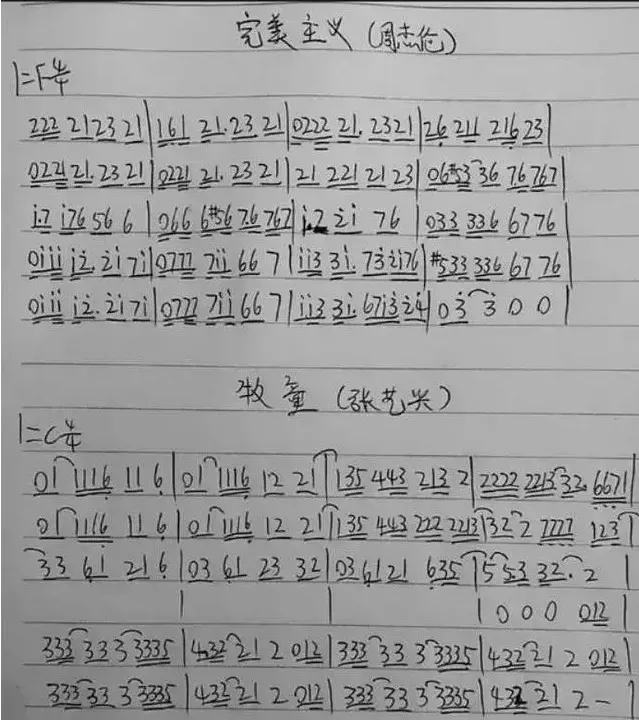 完美主义 (周杰伦)
1=F 4/4
222 21 23 21 | 161 21. 23. 21 | 0222 21. 2321 | 26 211 216 23 |
0221 21. 23 21 | 0221 21. 23 21 | 21 221 21 23 | 06#53 36 76 767 |
i.7 i76 56 6 | 066 6#56 76 767 | i.2 2i 76 | 033 336 67 76 |
0iii i2. 2i 7i | 0777 7ii 66 7 | ii3 3i. 73 2i76 | #533 336 67 76 |
0iii i2. 2i 7i | 0777 7ii 66 7 | ii3 3i. 67i3 24 | 03 3 0 0 |
牧童 (张艺兴)
1=C 4/4
01 1116 11 6 | 01 1116 12 21 | 135 443 213 2 | 2222 2213 32. 6671 |
01 1116 11 6 | 01 1116 12 21 | 135 443 222 2213 | 32 2 7777 123 |
33 61 21 6 | 03 61 23 32 | 03 61 21 635 | 5 53 32. 2 |
| | | 0 0 0 012 |
333 33 3 3335 | 432 21 2 012 | 333 33 3 3335 | 432 21 2 012 |
333 33 3 3335 | 432 21 2 012 | 333 33 3 3335 | 432 21 2 — |